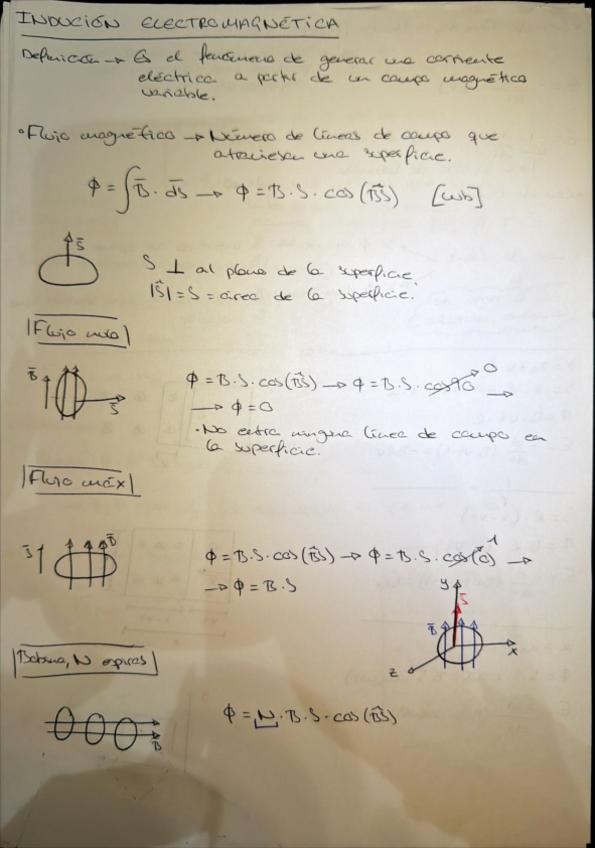 INDUCIÓN ELECTROMAGNÉTICA
Definición → Es el fenómeno de generar una corriente
eléctrica a partir de un campo magnético
variable.
• Flujo magnético → Número de líneas de campo que
atraviesan una superficie.
Φ = ∫ B̄ · ds̄ → Φ = B · S · cos (B̂S) [wb]
S̄
S ⊥ al plano de la superficie.
|S̄| = S = área de la superficie.
Flujo nulo
B̄
S̄
Φ = B · S · cos(B̂S) → Φ = B · S · cos 90 0 →
→ Φ = 0
· No entra ninguna línea de campo en
la superficie.
Flujo máx
S̄
B̄
Φ = B · S · cos(B̂S) → Φ = B · S · cos(0) 1 →
→ Φ = B · S
y
S̄
B̄
x
z
Bobina, N espiras
B̄
Φ = N · B · S · cos(B̂S)